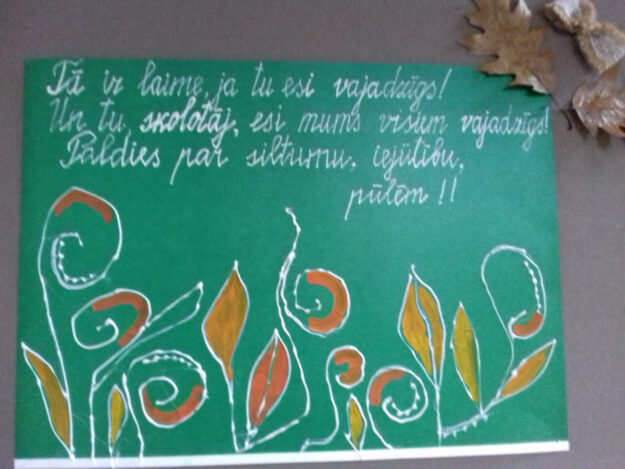 Tā ir laime, ja tu esi vajadzīgs!
Un tu, skolotāj, esi mums visiem vajadzīgs!
Paldies par siltumu, iejūtību,
pūlēm !!